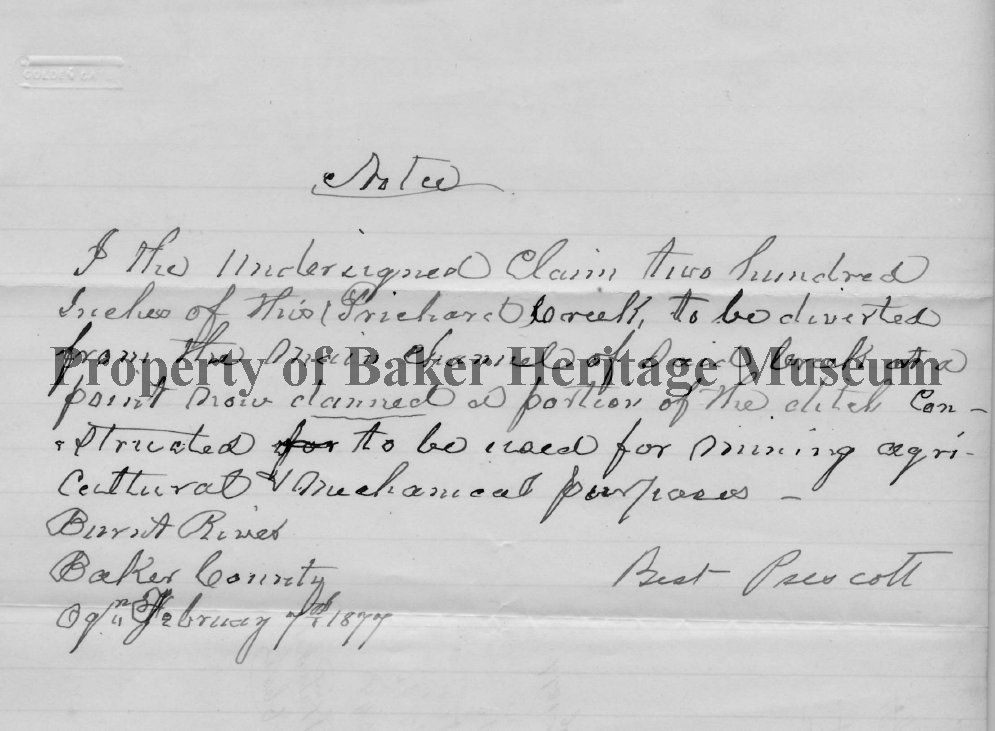 GOLDEN GATE
Notice
I the Undersigned Claim two hundred
Inches of this (Prichard) Creek, to be diverted
from the main channel of said Creek at a
Property of Baker Heritage Museum
point now damned a portion of the ditch Con-
structed for to be used for mining agri-
cultural & Mechanical purposes -
Burnt River
Baker County
Best Prescott
Ogn February 7th 1877